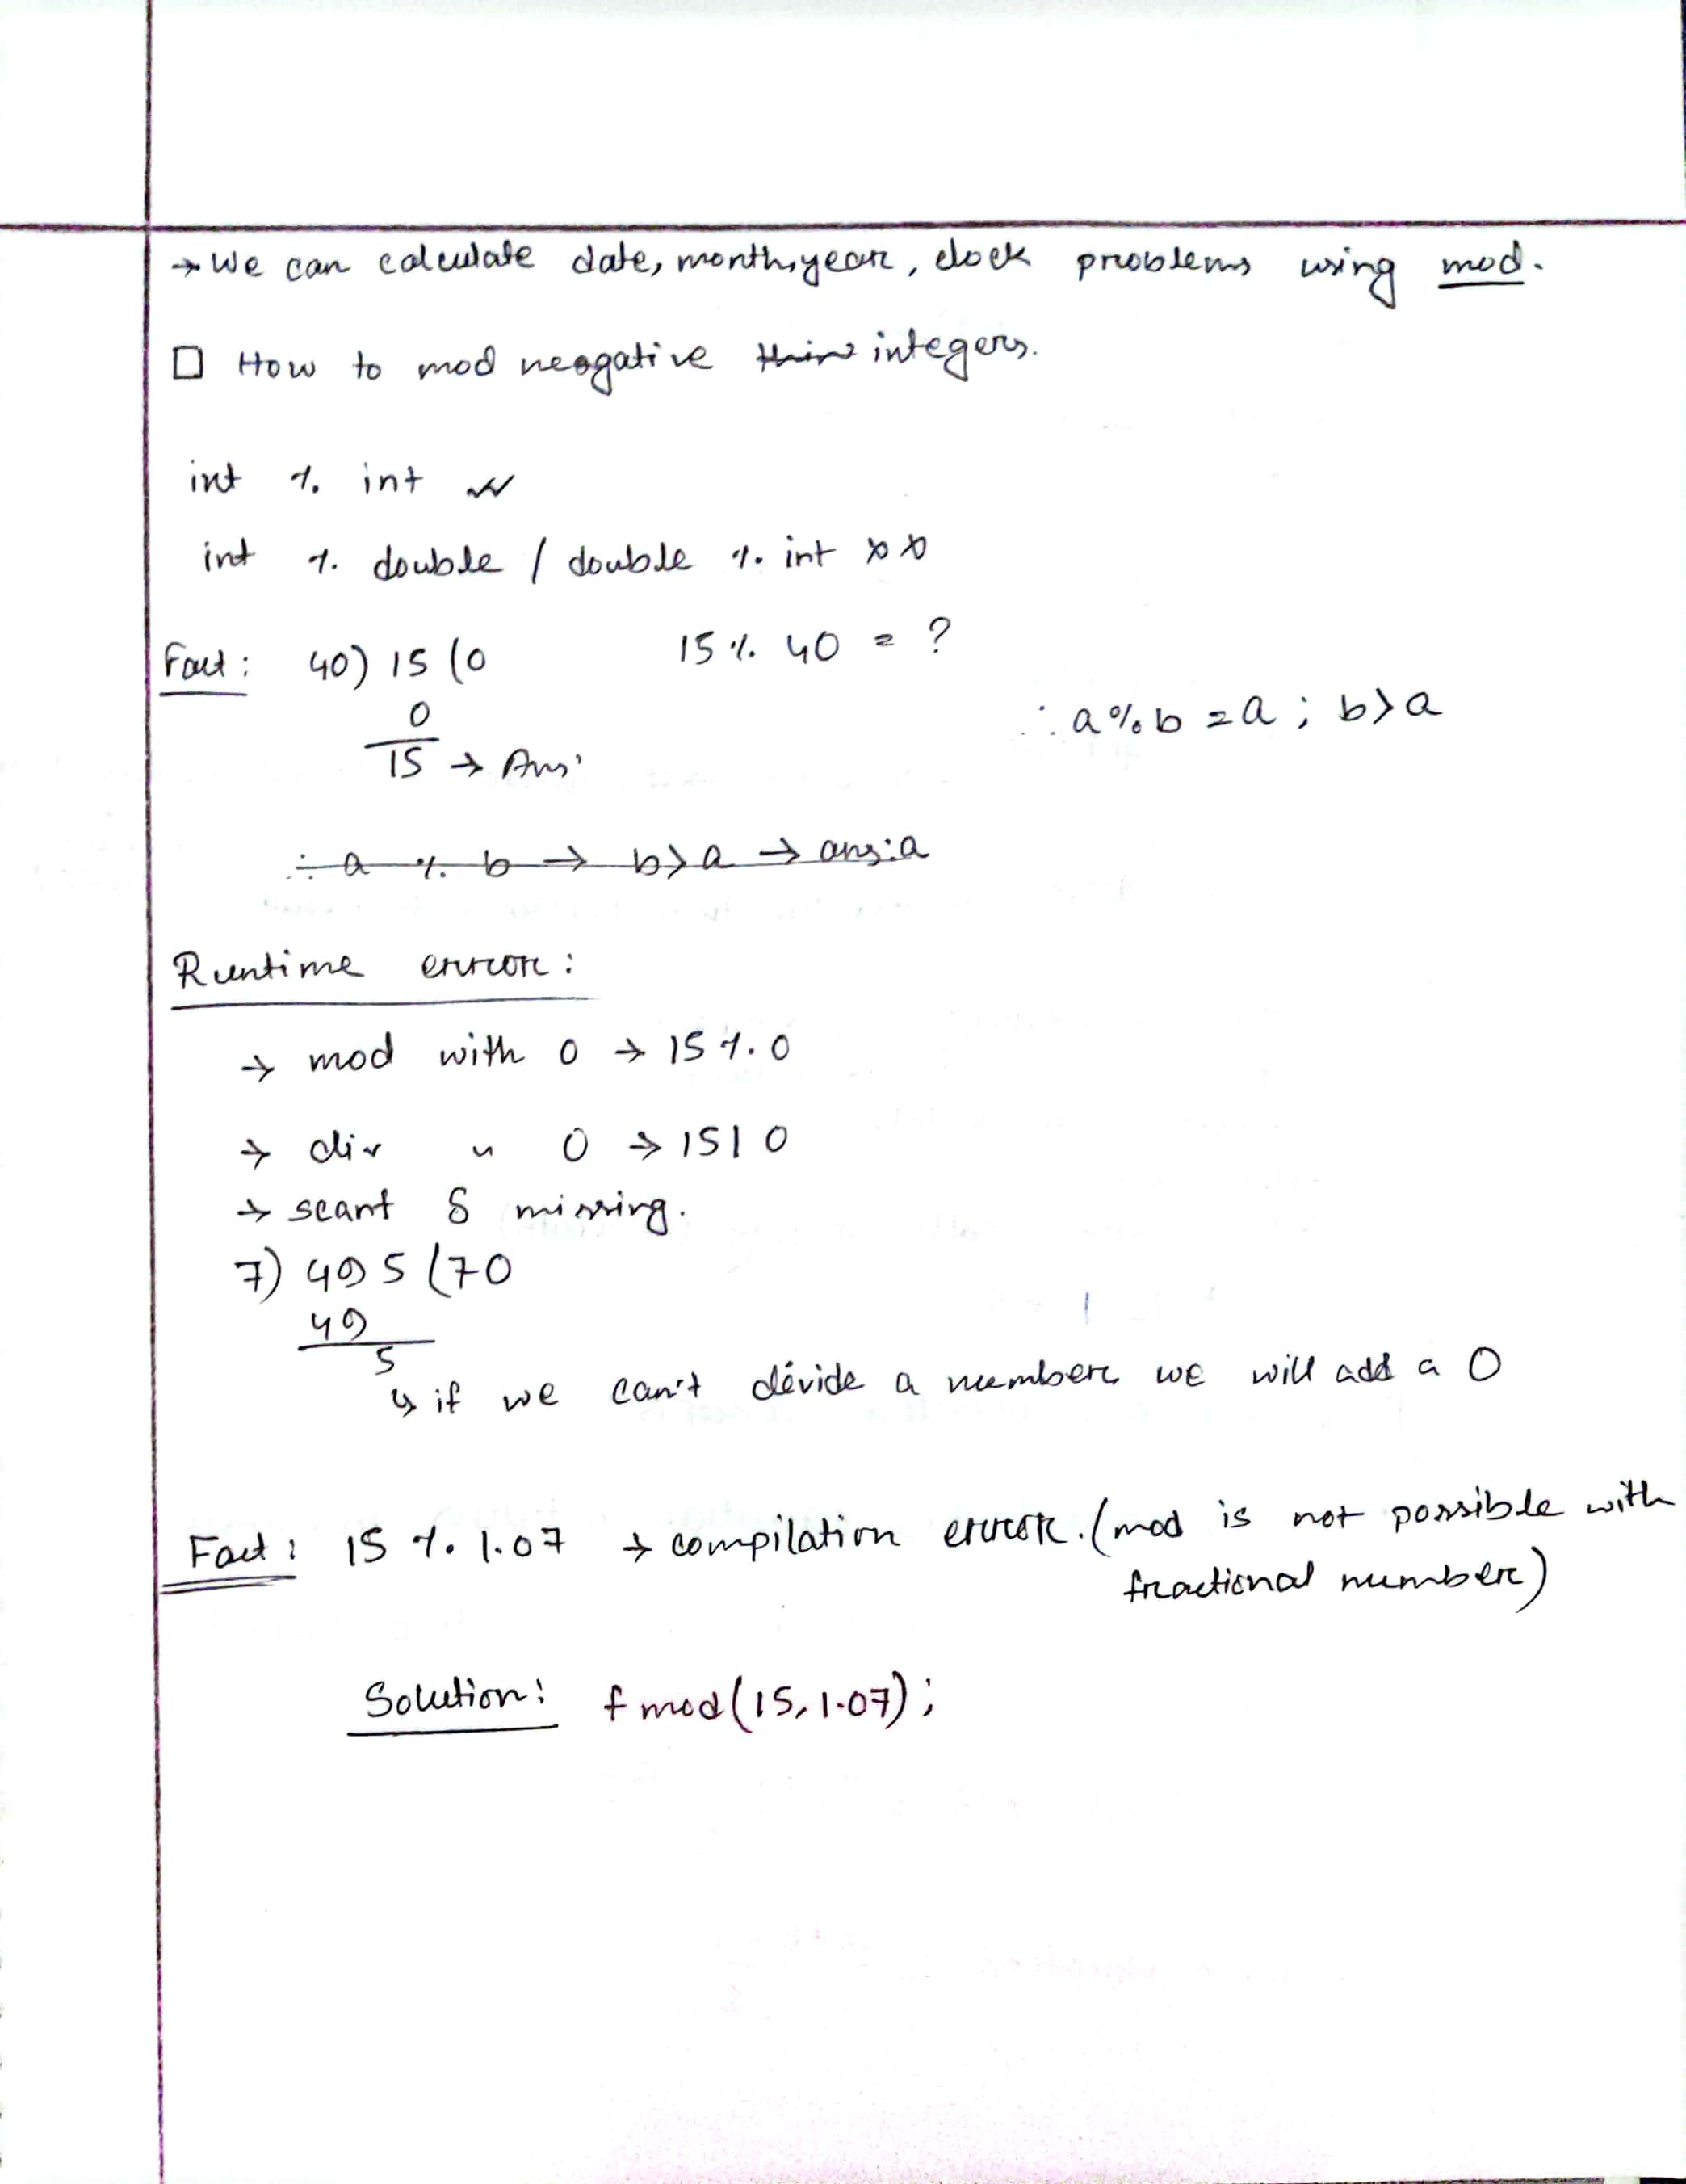 → We can calculate date, month, year, clock problems using mod.
□ How to mod negative integers.
int % int ✓✓
int % double / double % int ××
Fact: 40) 15 (0 15 % 40 = ?
0
15 → Ans:
∴ a % b = a ; b > a
∴ a % b → b > a → ans: a
Runtime error:
→ mod with 0 → 15 % 0
→ div " 0 → 15 / 0
→ scanf & missing.
7) 495 (70
49
5
↳ if we can't divide a number we will add a 0
Fact: 15 % 1.07 → compilation error. (mod is not possible with
fractional number)
Solution: fmod(15, 1.07);